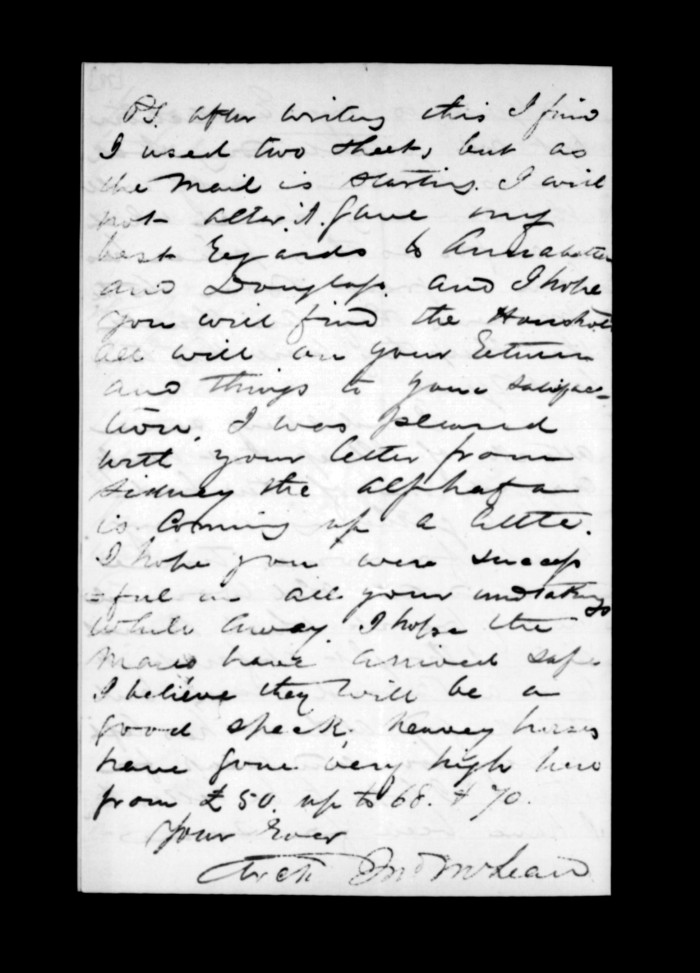 PS. after writing this I find
I used two sheets, but as
the Mail is starting. I will
not alter it. Gave my
best Regards to Annabella
and Douglass. and I hope
you will find the Household
all will on your Return
and things to your satisfac=
tion. I was pleased
with your letter from
Sidney the alphafa
is Coming up a little.
I hope you were success
=ful in all your undtakings
while away. I hope the
Mares have arrived safe
I believe they will be a
good speck. Heavey horses
have gone very high here
from £50. up to 68. & 70.
Your Ever
Archd Jno McLean